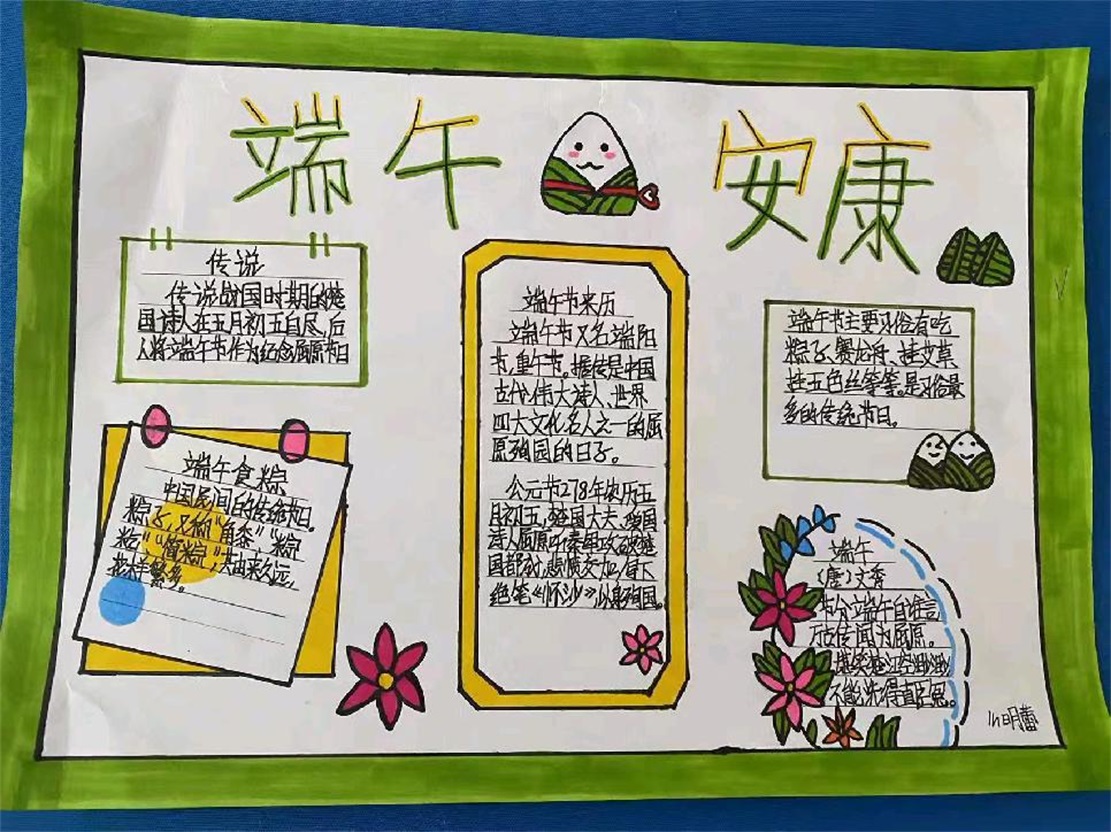 端午安康
传说
传说战国时期的楚
国诗人在五月初五自尽,后
人将端午节作为纪念屈原节日
端午食粽
中国民间的传统节日。
粽子,又称“角黍”“粽
粒”“筒粽”,其由来久远,
花样繁多。
端午节来历
端午节又名端阳
节,重午节。据传是中国
古代伟大诗人、世界
四大文化名人之一的屈
原殉国的日子。
公元节278年农历五
月初五,楚国大夫、爱国
诗人屈原听秦军攻破楚
国都城,悲愤交加,留下
绝笔《怀沙》以身殉国。
端午节主要习俗有吃
粽子、赛龙舟、挂艾草
挂五色丝等等。是习俗最
多的传统节日。
端午
(唐)文秀
节分端午自谁言
万古传闻为屈原。
堪笑楚江空渺渺
不能洗得直臣冤。
明蕾